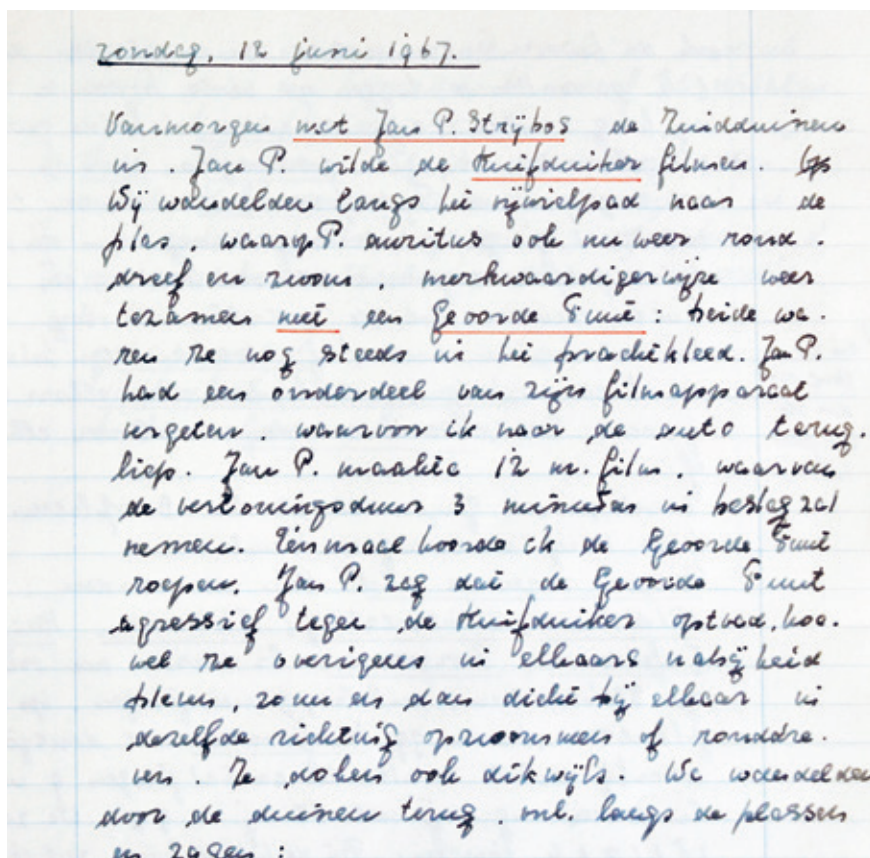 zondag, 12 juni 1967.
Vanmorgen met Jan P. Strijbos de Zuidduinen
in. Jan P. wilde de Kuifduiker filmen.
Wij wandelden langs het rijwielpad naar de
plas, waarop P. auritus ook nu weer rond-
dreef en zwom, merkwaardigerwijze weer
tezamen met een Geoorde Fuut: beide wa-
ren ze nog steeds in het prachtkleed. Jan P.
had een onderdeel van zijn filmapparaat
vergeten, waarvoor ik naar de auto terug-
liep. Jan P. maakte 12 m. film, waarvan
de vertoningsduur 3 minuten in beslag zal
nemen. Eénmaal hoorde ik de Geoorde Fuut
roepen. Jan P. zag dat de Geoorde Fuut
agressief tegen de Kuifduiker optrad, hoe-
wel ze overigens in elkaars nabijheid
bleven, zo nu en dan dicht bij elkaar in
dezelfde richting opzwommen of ronddre-
ven. Ze doken ook dikwijls. We wandelden
door de duinen terug, nl. langs de plassen
en zagen: